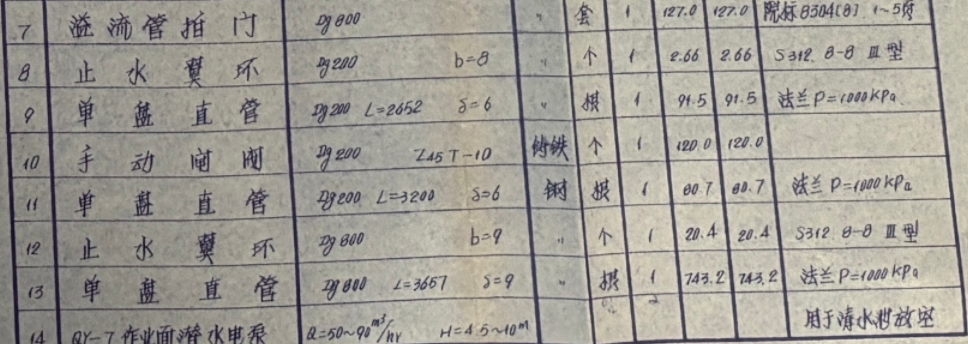 7 溢流管拍门 Dg800 〃 套 1 127.0 127.0 院标8304(8) 1~5页
8 止水翼环 Dg200 b=8 〃 个 1 2.66 2.66 S312 8-8 Ⅲ型
9 单盘直管 Dg200 L=2652 δ=6 〃 根 1 91.5 91.5 法兰P=1000kPa
10 手动闸阀 Dg200 Z45T-10 铸铁 个 1 120.0 120.0
11 单盘直管 Dg200 L=3200 δ=6 钢 根 1 80.7 80.7 法兰P=1000kPa
12 止水翼环 Dg800 b=9 〃 个 1 20.4 20.4 S312 8-8 Ⅲ型
13 单盘直管 Dg800 L=3657 δ=9 〃 根 1 743.2 743.2 法兰P=1000kPa
14 QY-7作业面潜水电泵 Q=50~90m³/hr H=4.5~10m 用于清水池放空